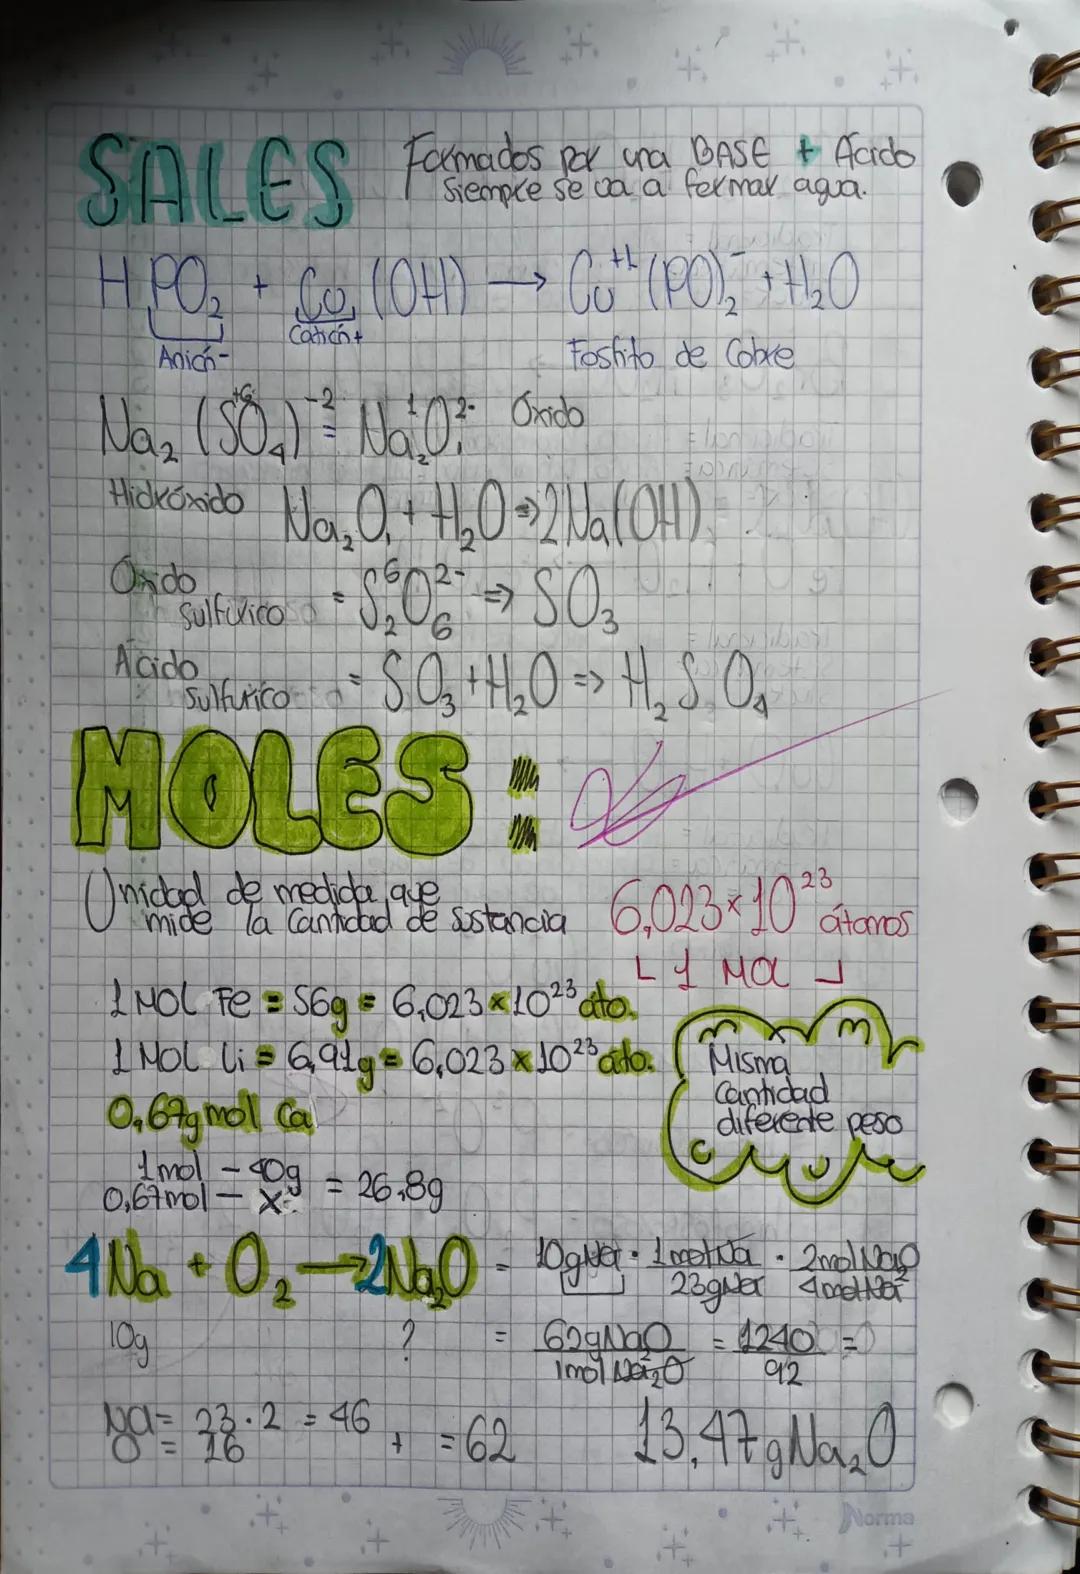 SALES
Formados por una BASE + Ácido
siempre se va a formar agua.
HPO₂ + Co (OH) → Cu⁺¹ (PO)₂⁻ + H₂O
Anión- Catión+
Fosfito de Cobre
Na₂ (S⁺⁶O₄)⁻² = Na₂¹O₁²⁻ Óxido
Hidróxido Na₂O₁ + H₂O ⇒ 2Na(OH)
Óxido
Sulfúrico = S₂⁶O₆²⁻ ⇒ SO₃
Ácido
Sulfurico = SO₃ + H₂O ⇒ H₂SO₄
MOLES:
Unidad de medida que
mide la Cantidad de sustancia
6,023×10²³ átomos
1 MOL
1 MOL Fe = 56g = 6,023×10²³ áto.
1 MOL Li = 6,91g = 6,023×10²³ áto.
Misma
Cantidad
diferente peso
0,67g mol Ca
1mol – 40g
0,67mol – X = 26,8g
4Na + O₂ → 2Na₂O = 10gNa · 1molNa / 23gNa · 2molNa₂O / 4molNa
10g ? = 62gNa₂O / 1molNa₂O = 1240 / 92 =
Na = 23·2 = 46
O = 16 + = 62
13,47gNa₂O
Norma